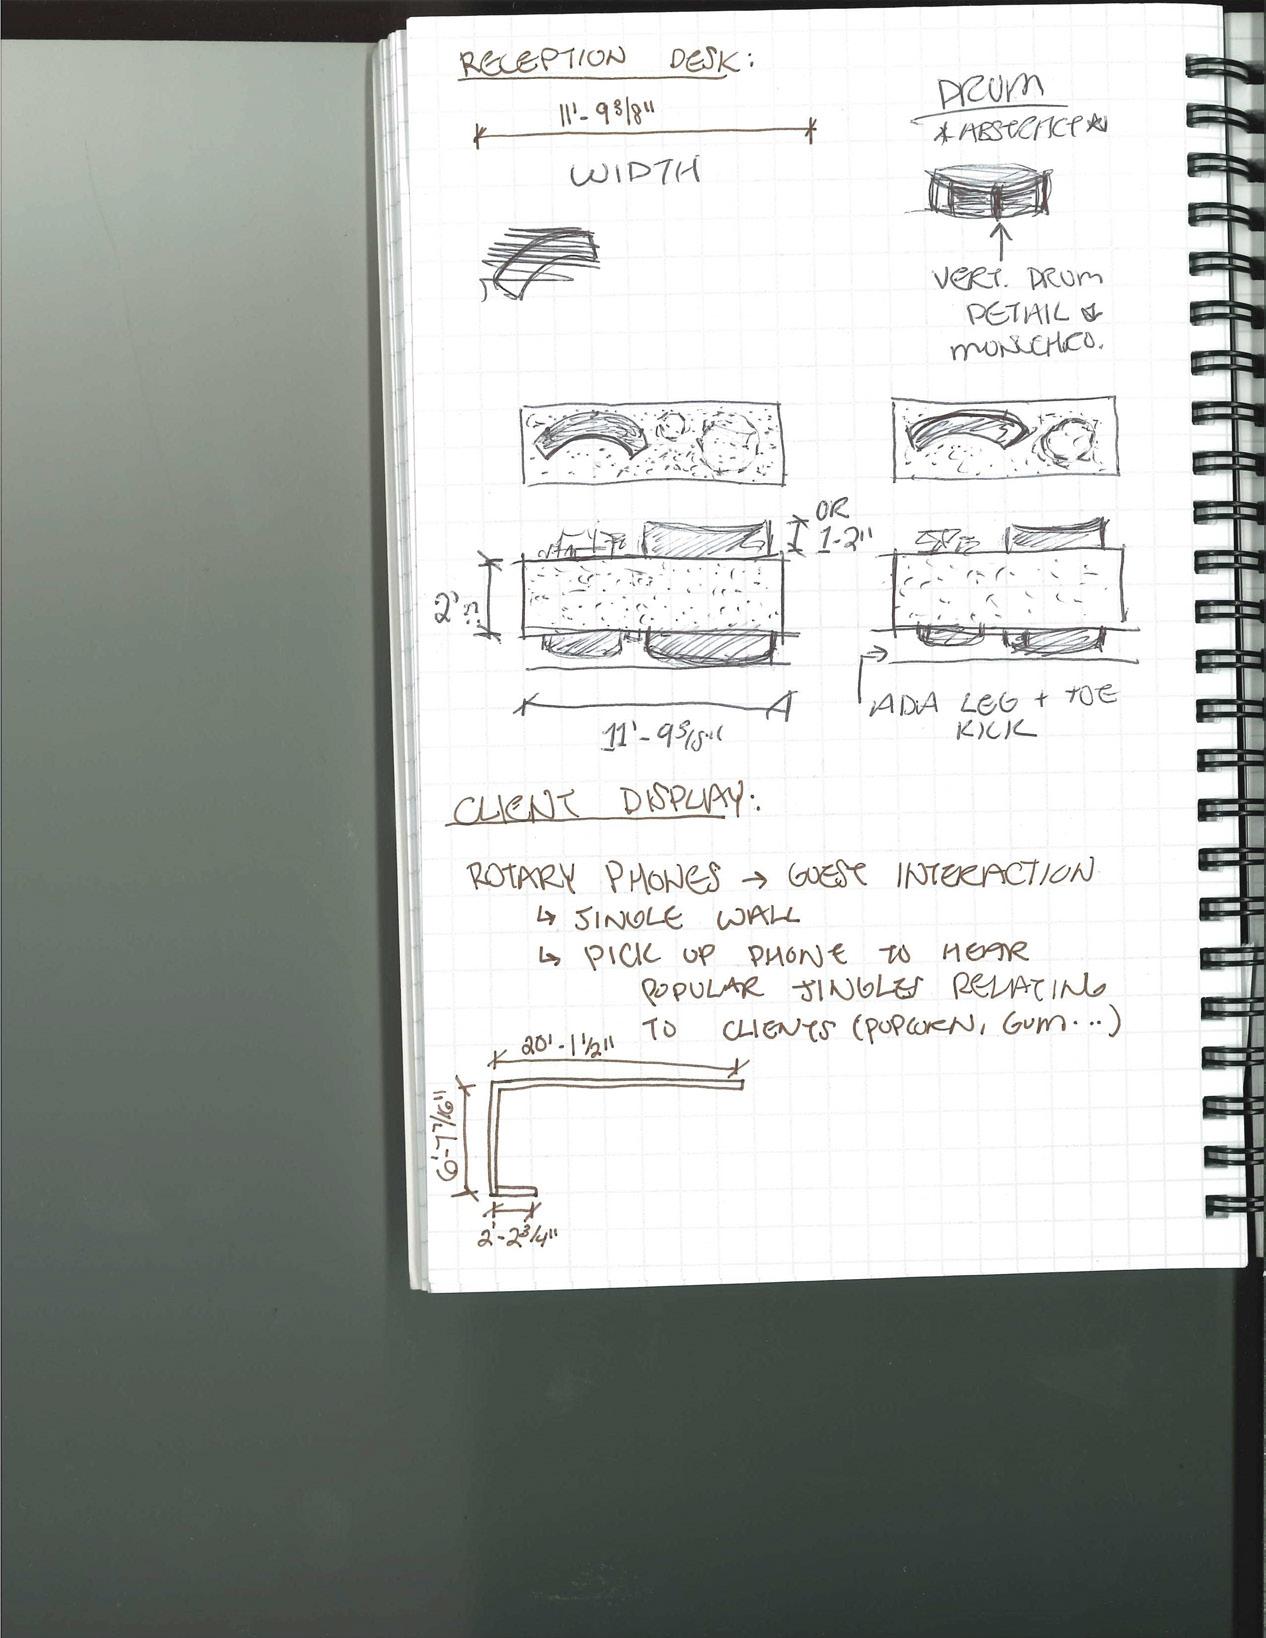 RECEPTION DESK:
11'-9 3/8"
WIDTH
DRUM
VERT. DRUM
DETAIL &
OR
1-2"
2'
11'-9 3/8"
ADA LEG + TOE
KICK
CLIENT DISPLAY:
ROTARY PHONES → GUEST INTERACTION
↳ JINGLE WALL
↳ PICK UP PHONE TO HEAR
POPULAR JINGLES RELATING
TO CLIENTS (POPCORN, GUM...)
20'-1 1/2"
6'-7 7/16"
2'-2 3/4"